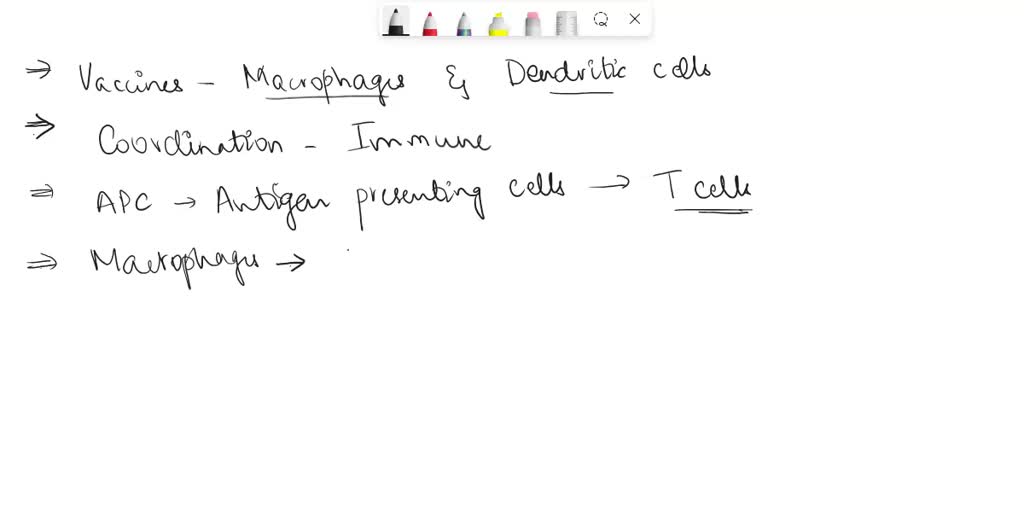 ⇒ Vaccines - Macrophages & Dendritic cells
⇒ Coordination - Immune
⇒ APC → Antigen presenting cells → T cells
⇒ Macrophages →